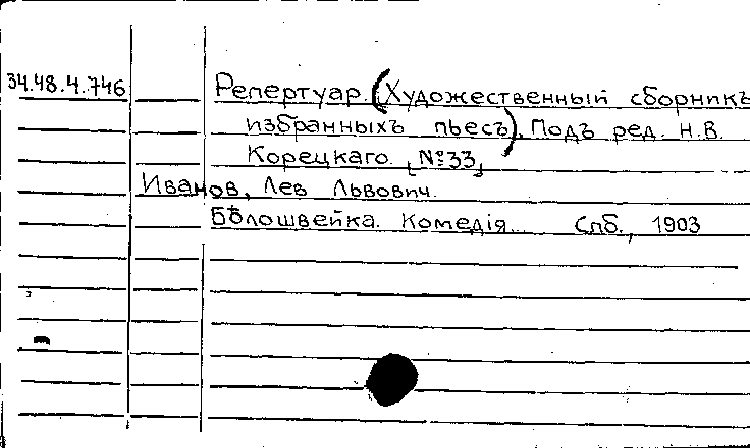 34.48.4.746 Репертуар. (Художественный сборникъ
избранныхъ пьесъ). Подъ ред. Н.В.
Корецкаго. [№33]
Иванов, Лев Львович.
Бѣлошвейка. Комедія... Спб., 1903